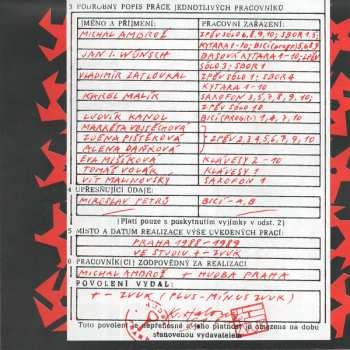 3 PODROBNÝ POPIS PRÁCE JEDNOTLIVÝCH PRACOVNÍKŮ
JMÉNO A PŘÍJMENÍ: PRACOVNÍ ZAŘAZENÍ:
MICHAL AMBROŽ ZPĚV SÓLO 6, 8, 9, 10; SBOR 1, 5;
KYTARA 1-10; BICÍ (progr.) 5, 6, 9
JAN I. WÜNSCH BASOVÁ KYTARA 1-10; ZPĚV
SÓLO 3; SBOR 1
VLADIMÍR ZATLOUKAL ZPĚV SÓLO 1; SBOR 4
KYTARA 1-10
KAREL MALÍK SAXOFON 3, 5, 7, 8, 9, 10;
ZPĚV SÓLO 10
LUDVÍK KANDL BICÍ (PROGR.) 1, 4, 7, 10
MARKÉTA VOJTĚCHOVÁ
ZDENA PIŠTĚKOVÁ ZPĚV 2, 3, 4, 5, 6, 7, 9, 10
ALENA DAŇKOVÁ
EVA MIŠÍKOVÁ KLÁVESY 2-10
TOMAŠ VOLÁK KLÁVESY 1
VÍT MALINOVSKÝ SAXOFON 1
4 UPŘESŇUJÍCÍ ÚDAJE:
MIROSLAV PETRŮ BICÍ - A, B
(Platí pouze s poskytnutím výjimky v odst. 2)
5 MÍSTO A DATUM REALIZACE VÝŠE UVEDENÝCH PRACÍ:
PRAHA 1988-1989
VE STUDIU +-ZVUK
6 PRACOVNÍK(CI) ZODPOVĚDNÝ ZA REALIZACI
MICHAL AMBROŽ + HUDBA PRAHA
POVOLENÍ VYDAL:
+-ZVUK (PLUS-MÍNUS ZVUK)
Toto povolení je nepřenosné a jeho platnost je omezena na dobu
stanovenou vydavatelem